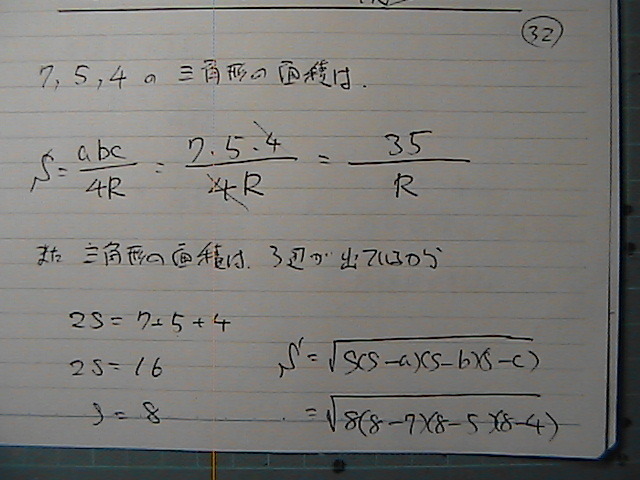 32
7, 5, 4 の 三角形の面積は.
S = abc/4R = 7・5・4/4R = 35/R
また 三角形の面積は. 3辺が出ているから
2S = 7+5+4
2S = 16
S = 8
S = √S(S-a)(S-b)(S-c)
= √8(8-7)(8-5)(8-4)